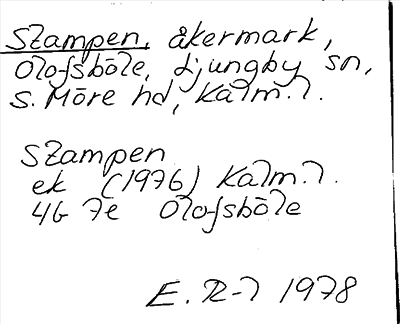 Stampen, åkermark,
Olofsböle, Ljungby sn,
S. Möre hd, Kalm. l.
Stampen
ek (1976) Kalm. l.
4G 7e Olofsböle
E. R-l 1978